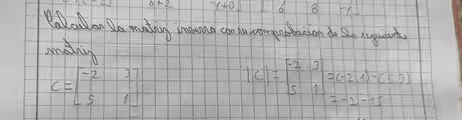 6+2 -1+0 6 8 -1
Calcular la matriz inversa con su comprobación de la siguiente
matriz
C = [-2 3
5 1]
|C| = |-2 3
5 1| = (-2·1)-(5·3)
= -2-15